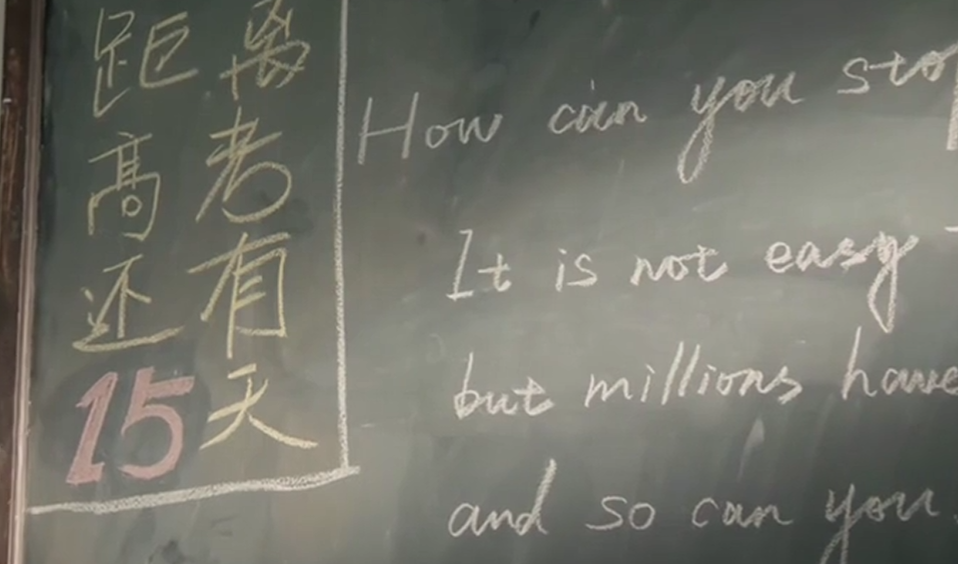 距离
高考
还有
15天
How can you
It is not easy
but millions have
and so can you